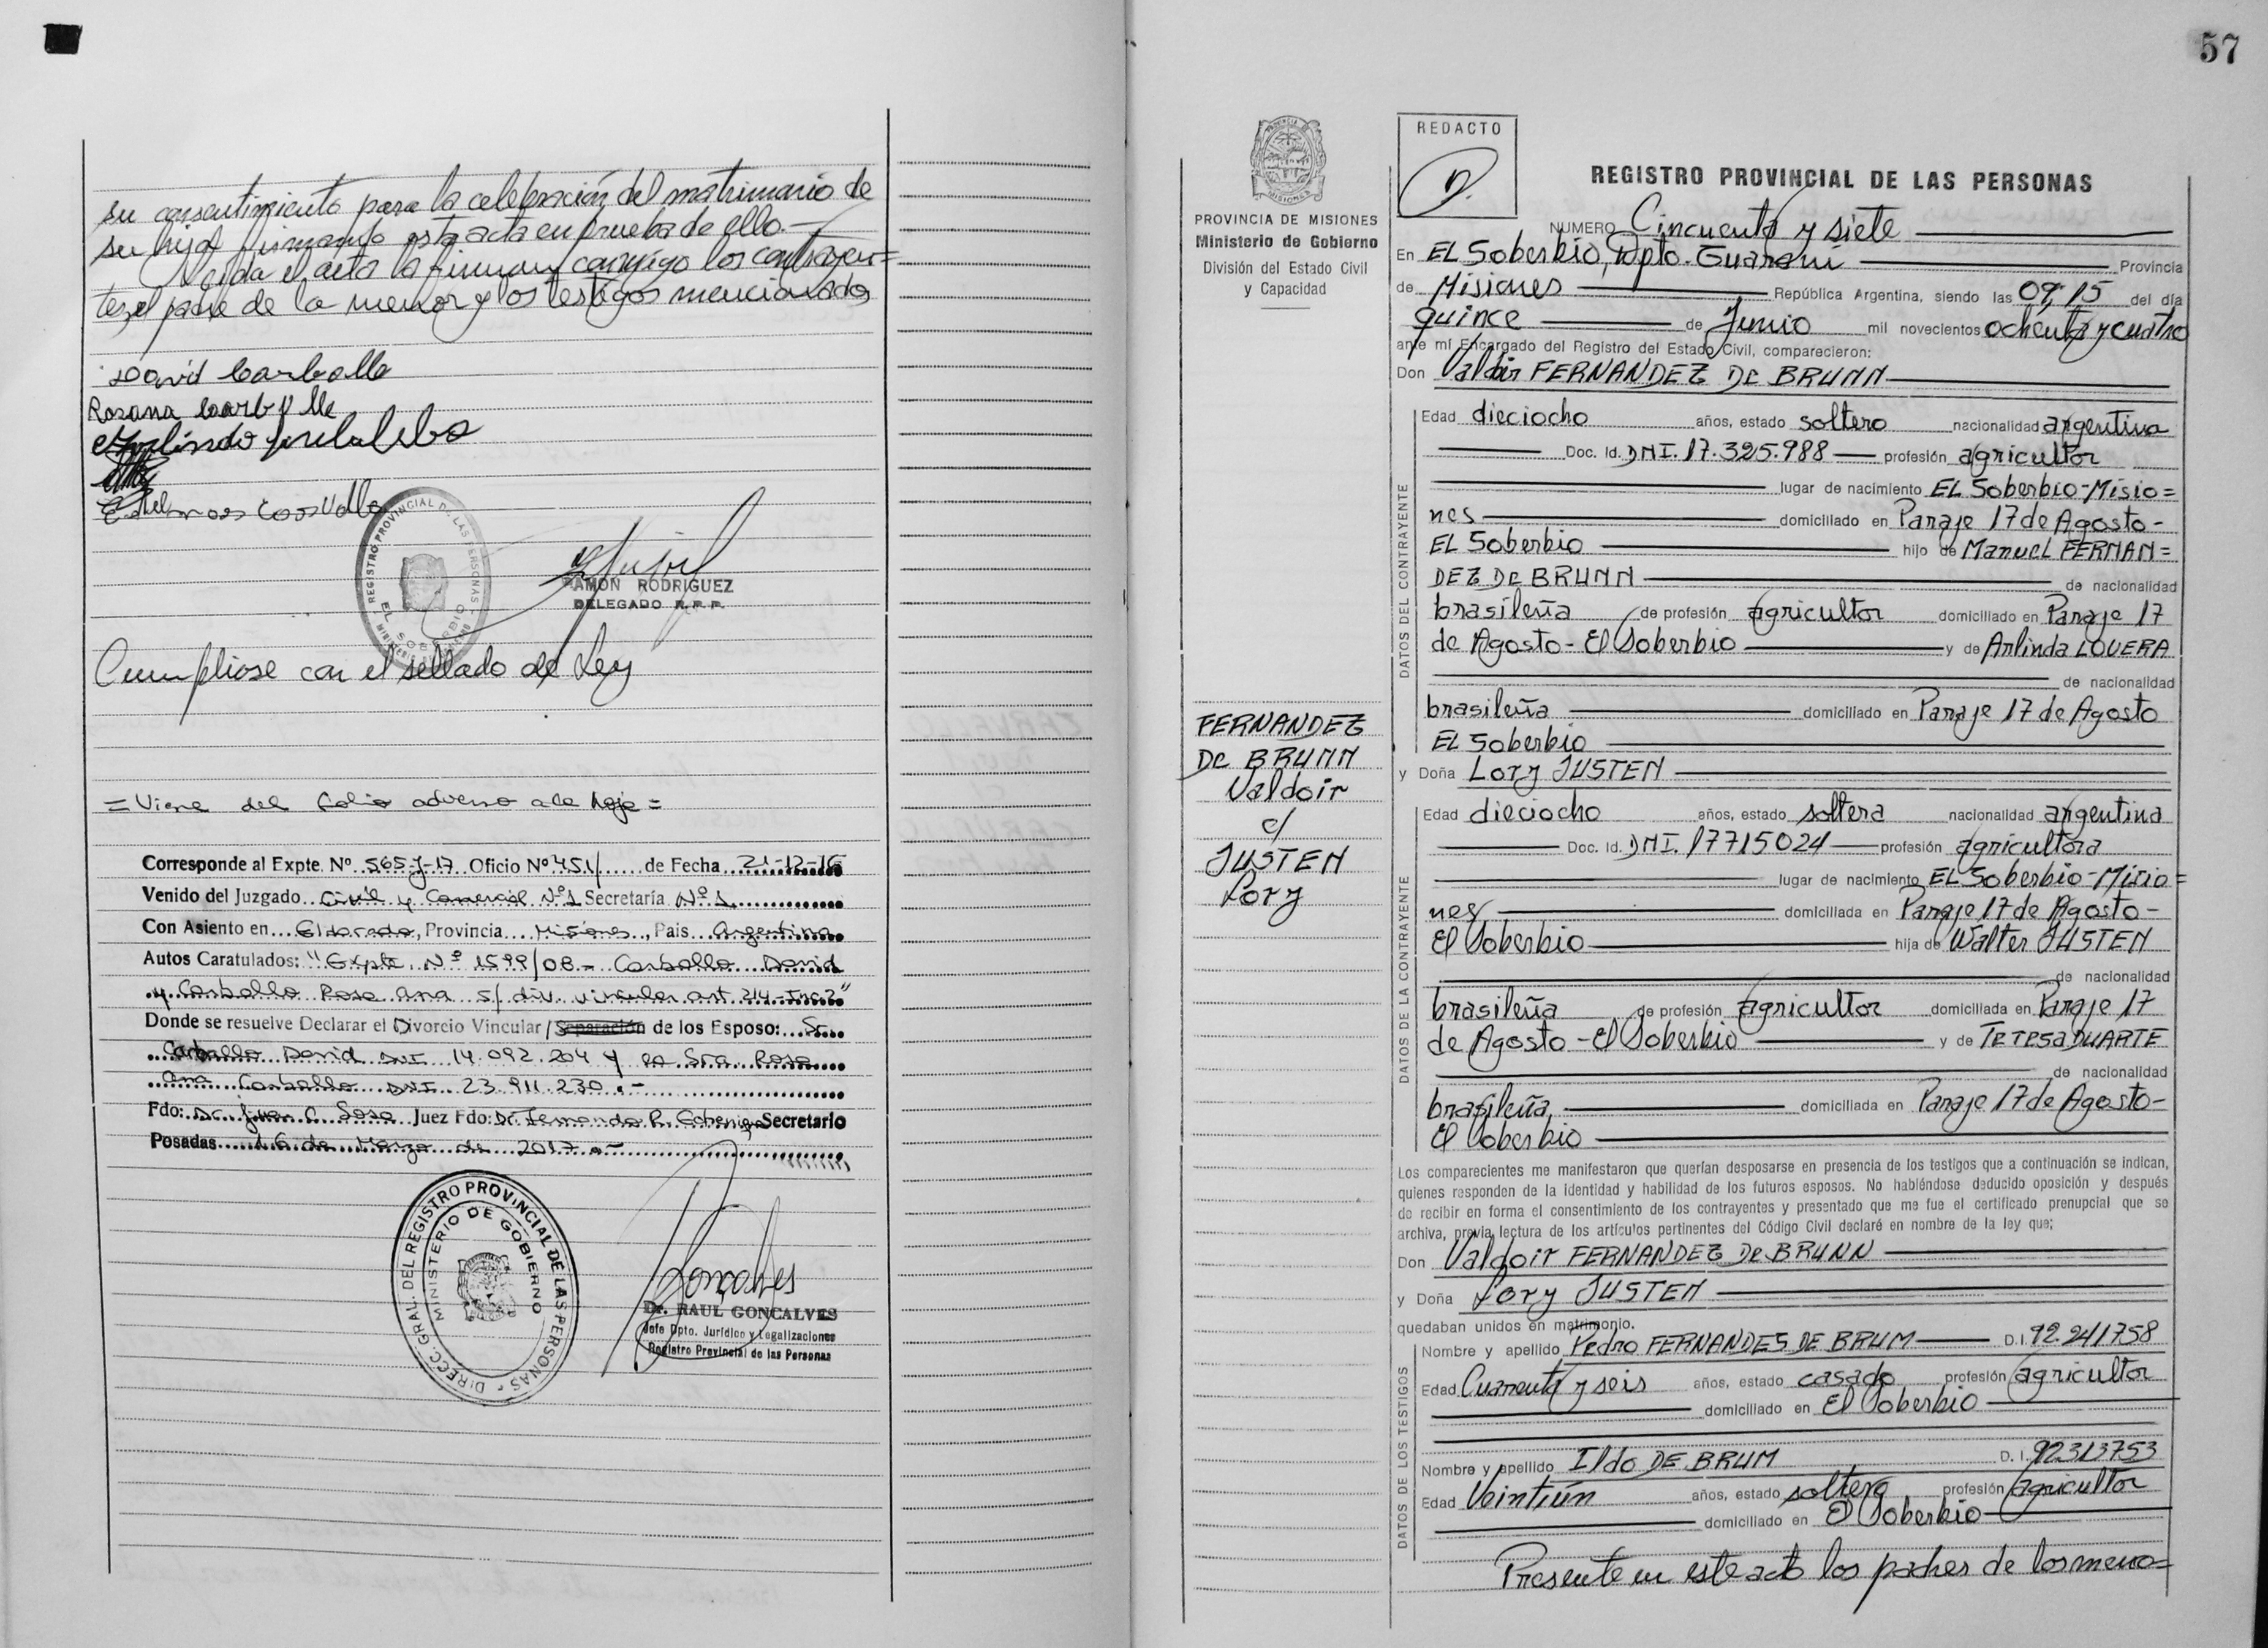 su consentimiento para la celebración del matrimonio de
su hija firmando esta acta en prueba de ello.-
Leída el acta la firman conmigo los contrayen=
tes, el padre de la menor y los testigos mencionados
David Carballo
Rosana Carballo
RAMON RODRIGUEZ
DELEGADO R.P.P.
REGISTRO PROVINCIAL DE LAS PERSONAS
EL SOBERBIO
Cumpliose con el sellado de Ley
= Viene del folio adverso a la hoja =
Corresponde al Expte. Nº 565-J-17 Oficio Nº 451/ de Fecha 21-12-16
Venido del Juzgado Civil y Comercial Nº1 Secretaría Nº 1
Con Asiento en Eldorado, Provincia Misiones, Pais Argentina
Autos Caratulados: "Expte Nº 1599/08 - Carballo David
y Carballo Rosa Ana s/ div. vincular art. 214-Inc 2"
Donde se resuelve Declarar el Divorcio Vincular / Separación de los Esposo: Sr.
Carballo David DNI 14.092.204 y la Sra Rosa
Ana Carballo DNI 23.911.230.-
Fdo: Dr. Juan C. Sosa Juez Fdo: Dr. Fernando R. Secretario
Posadas 16 de Marzo de 2017.-
DIRECC. GRAL. DEL REGISTRO PROVINCIAL DE LAS PERSONAS
MINISTERIO DE GOBIERNO
Goncalves
Dr. RAUL GONCALVES
Jefe Dpto. Jurídico y Legalizaciones
Registro Provincial de las Personas
57
PROVINCIA DE MISIONES
Ministerio de Gobierno
División del Estado Civil
y Capacidad
FERNANDEZ
DE BRUNN
Valdoir
c/
JUSTEN
Lory
REDACTO
REGISTRO PROVINCIAL DE LAS PERSONAS
NUMERO Cincuenta y siete
En EL Soberbio, Dpto. Guaraní Provincia
de Misiones República Argentina, siendo las 09,15 del día
quince de Junio mil novecientos ochenta y cuatro
ante mí Encargado del Registro del Estado Civil, comparecieron:
Don Valdoir FERNANDEZ DE BRUNN
DATOS DEL CONTRAYENTE
Edad dieciocho años, estado soltero nacionalidad argentina
Doc. Id. DNI. 17.325.988 profesión agricultor
lugar de nacimiento EL Soberbio-Misio=
nes domiciliado en Paraje 17 de Agosto-
EL Soberbio hijo de Manuel FERNAN=
DEZ DE BRUNN de nacionalidad
brasileña de profesión agricultor domiciliado en Paraje 17
de Agosto - El Soberbio y de Arlinda LOVERA
de nacionalidad
brasileña domiciliado en Paraje 17 de Agosto
EL Soberbio
y Doña Lory JUSTEN
DATOS DE LA CONTRAYENTE
Edad dieciocho años, estado soltera nacionalidad argentina
Doc. Id. DNI. 17715024 profesión agricultora
lugar de nacimiento EL Soberbio-Misio=
nes domiciliada en Paraje 17 de Agosto-
El Soberbio hija de Walter JUSTEN
de nacionalidad
brasileña de profesión agricultor domiciliada en Paraje 17
de Agosto - El Soberbio y de Teresa DUARTE
de nacionalidad
brasileña domiciliada en Paraje 17 de Agosto-
El Soberbio
Los comparecientes me manifestaron que querían desposarse en presencia de los testigos que a continuación se indican,
quienes responden de la identidad y habilidad de los futuros esposos. No habiéndose deducido oposición y después
de recibir en forma el consentimiento de los contrayentes y presentado que me fue el certificado prenupcial que se
archiva, previa lectura de los artículos pertinentes del Código Civil declaré en nombre de la ley que;
Don Valdoir FERNANDEZ DE BRUNN
y Doña Lory JUSTEN
quedaban unidos en matrimonio.
DATOS DE LOS TESTIGOS
Nombre y apellido Pedro FERNANDES DE BRUM D.I. 92.241758
Edad Cuarenta y seis años, estado casado profesión agricultor
domiciliado en El Soberbio
Nombre y apellido Ildo DE BRUM D.I. 92313753
Edad Veintiún años, estado soltero profesión agricultor
domiciliado en El Soberbio
Presente en este acto los padres de los meno=